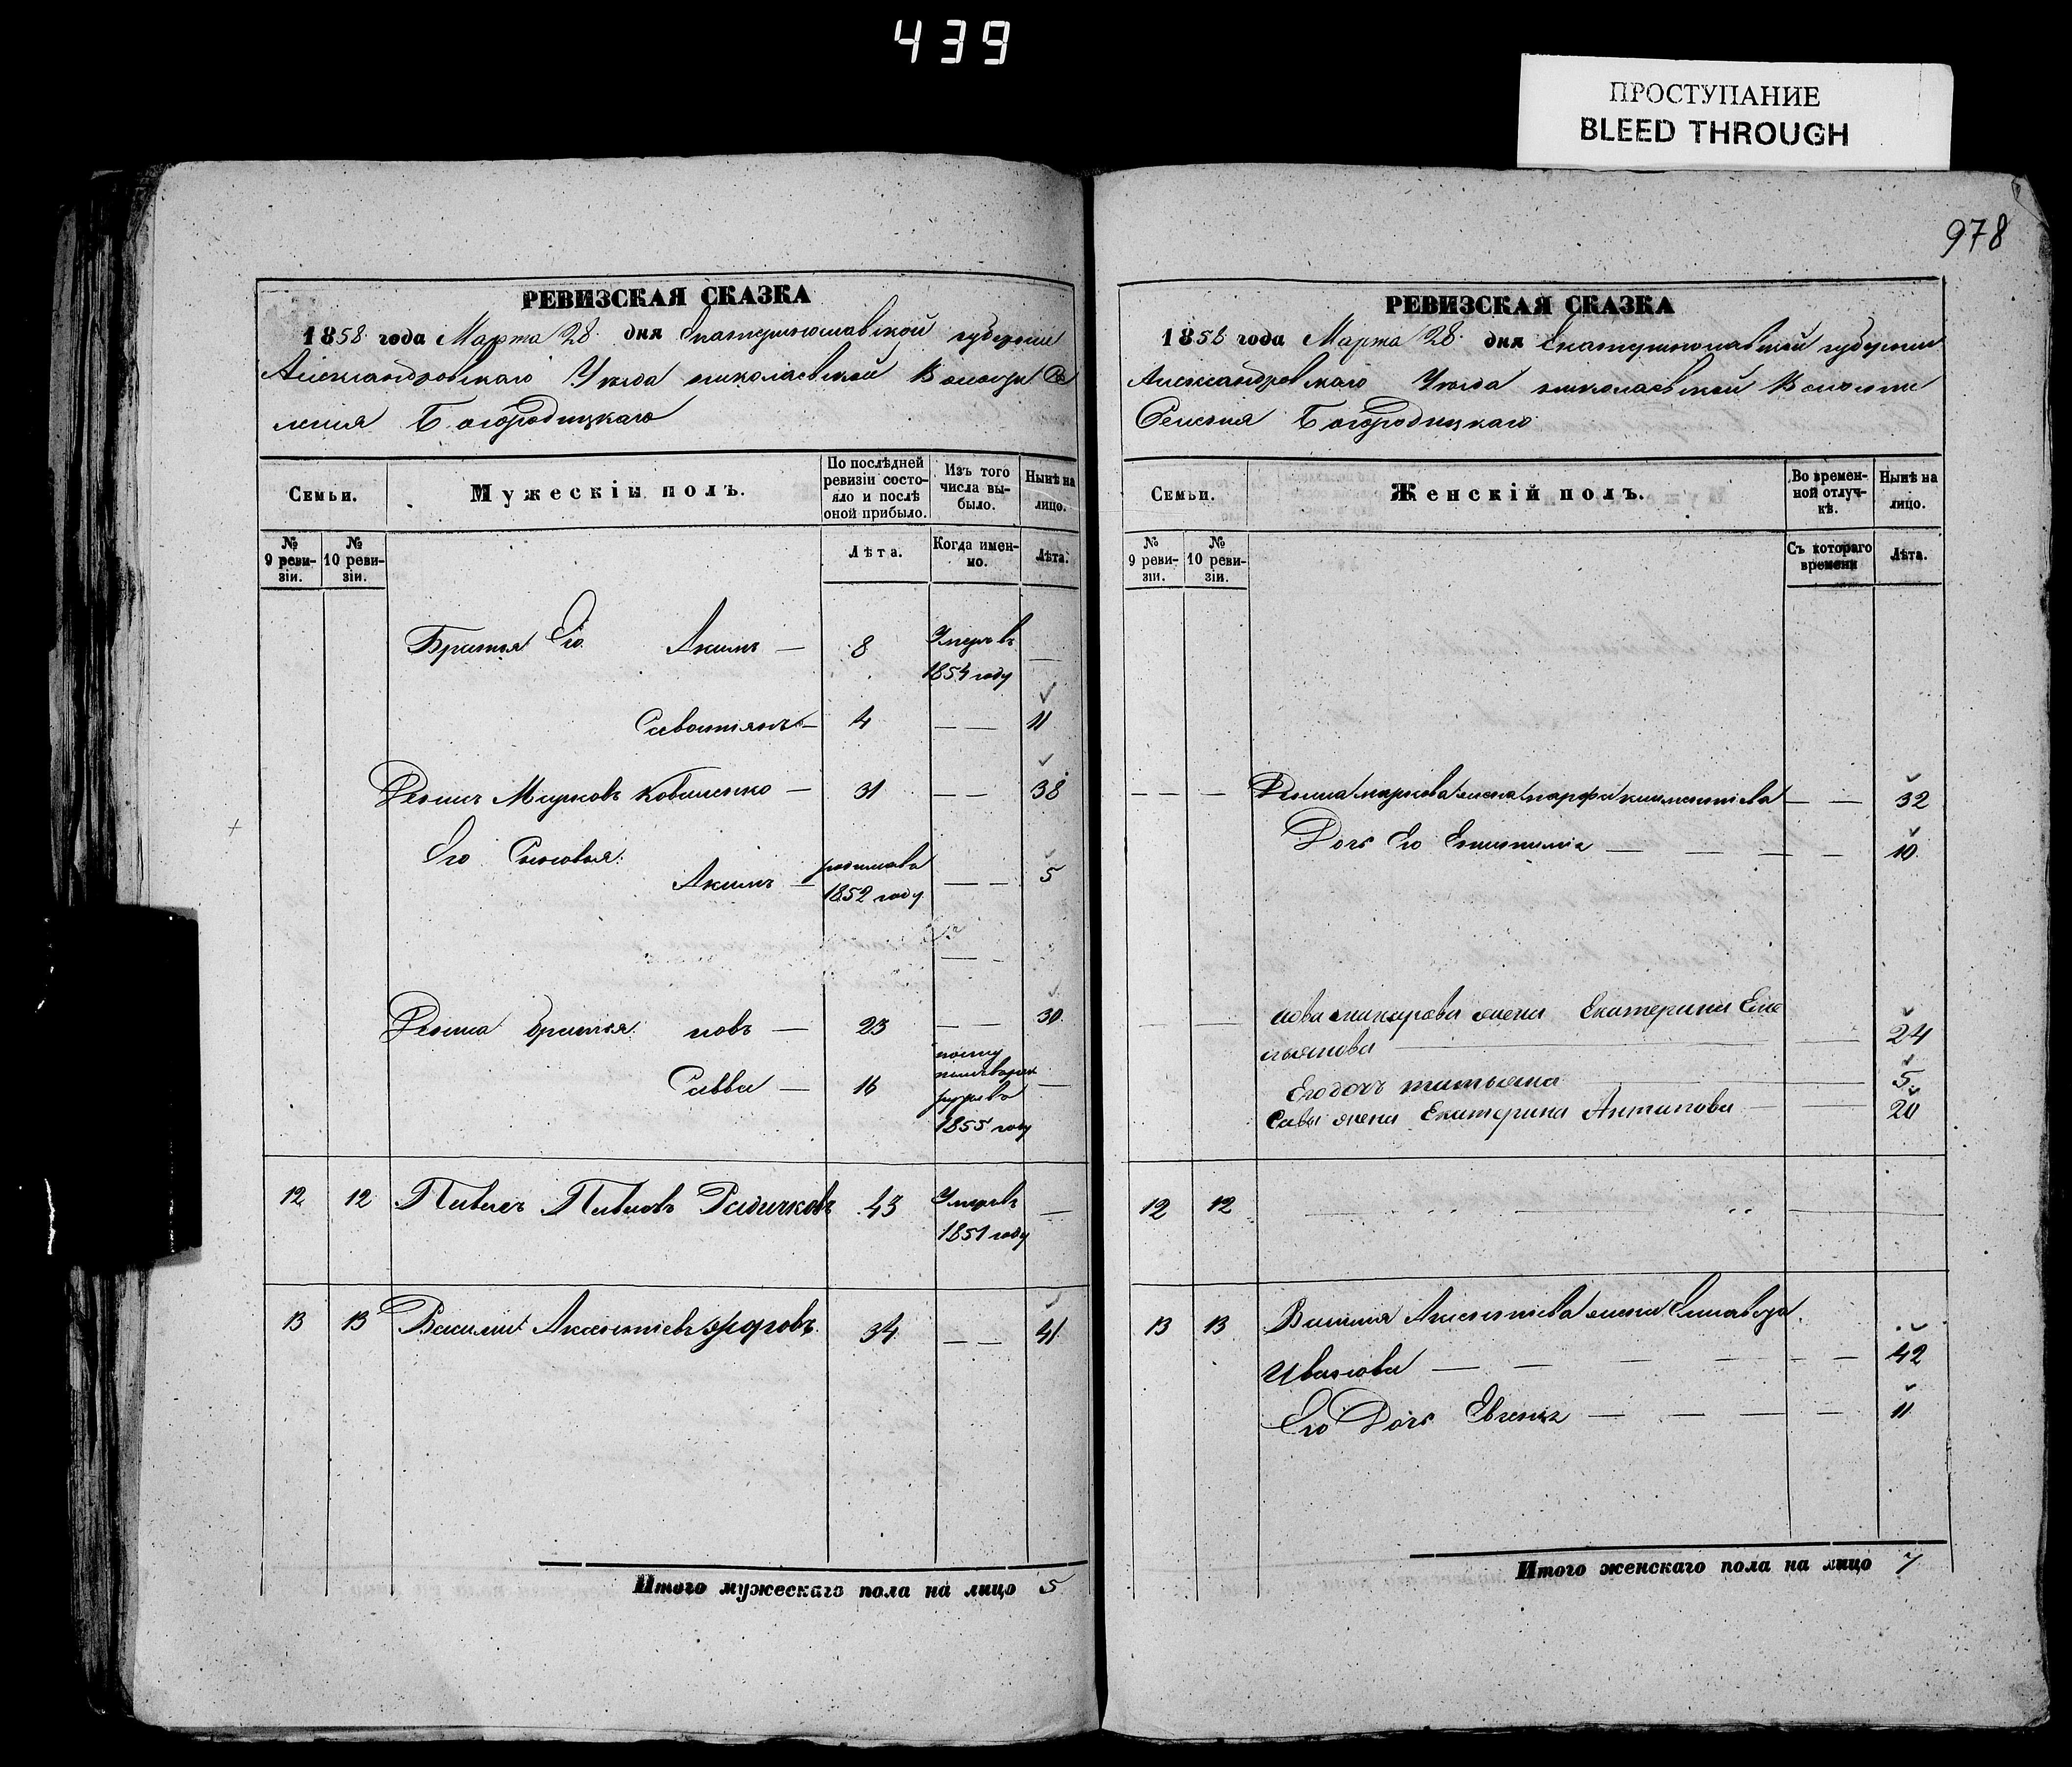 439
ПРОСТУПАНИЕ
BLEED THROUGH
978
РЕВИЗСКАЯ СКАЗКА
1858 года Марта 28 дня Екатеринославской губернии
Александровскаго Уезда николаевской Волости Се
ления Богородицкаго
Семьи.
Мужескій полъ.
По послѣдней ревизіи состо-яло и послѣ оной прибыло.
Изъ того числа вы-было.
Нынѣ на лицо.
№ 9 реви-зіи.
№ 10 реви-зіи.
Лѣта.
Когда имен-но.
Лѣта.
Братья Его Акимъ — 8 Умеръ въ 1854 году —
Савастянъ — 4 — — 11
Фомич Марковъ — 31 — — 38
Его Сыновья:
Акимъ — 1852 году — — 5
братья — 23 — — 30
Савва — 16 1855 году —
12 12 Павелъ Павловъ 43 Умеръ 1851 году —
13 13 Василий 34 — — 41
Итого мужескаго пола на лицо 5
РЕВИЗСКАЯ СКАЗКА
1858 года Марта 28 дня Екатеринославской губернии
Александровскаго Уезда николаевской Волости
Селения Богородицкаго
Семьи.
Женскій полъ.
Во времен-ной отлуч-кѣ.
Нынѣ на лицо.
№ 9 реви-зіи.
№ 10 реви-зіи.
Съ котораго времени
Лѣта.
— — — маркова жена — — 32
Дочь Его — — — — 10
жена Екатерина Еме
льянова — — 24
Его дочь татьяна — — 5
Савы жена Екатерина Антипова — — 20
12 12 — — —
13 13 Василия жена Елисавета
Иванова — — — — — — 42
Его Дочь Евгения — — — — — 11
Итого женскаго пола на лицо 7